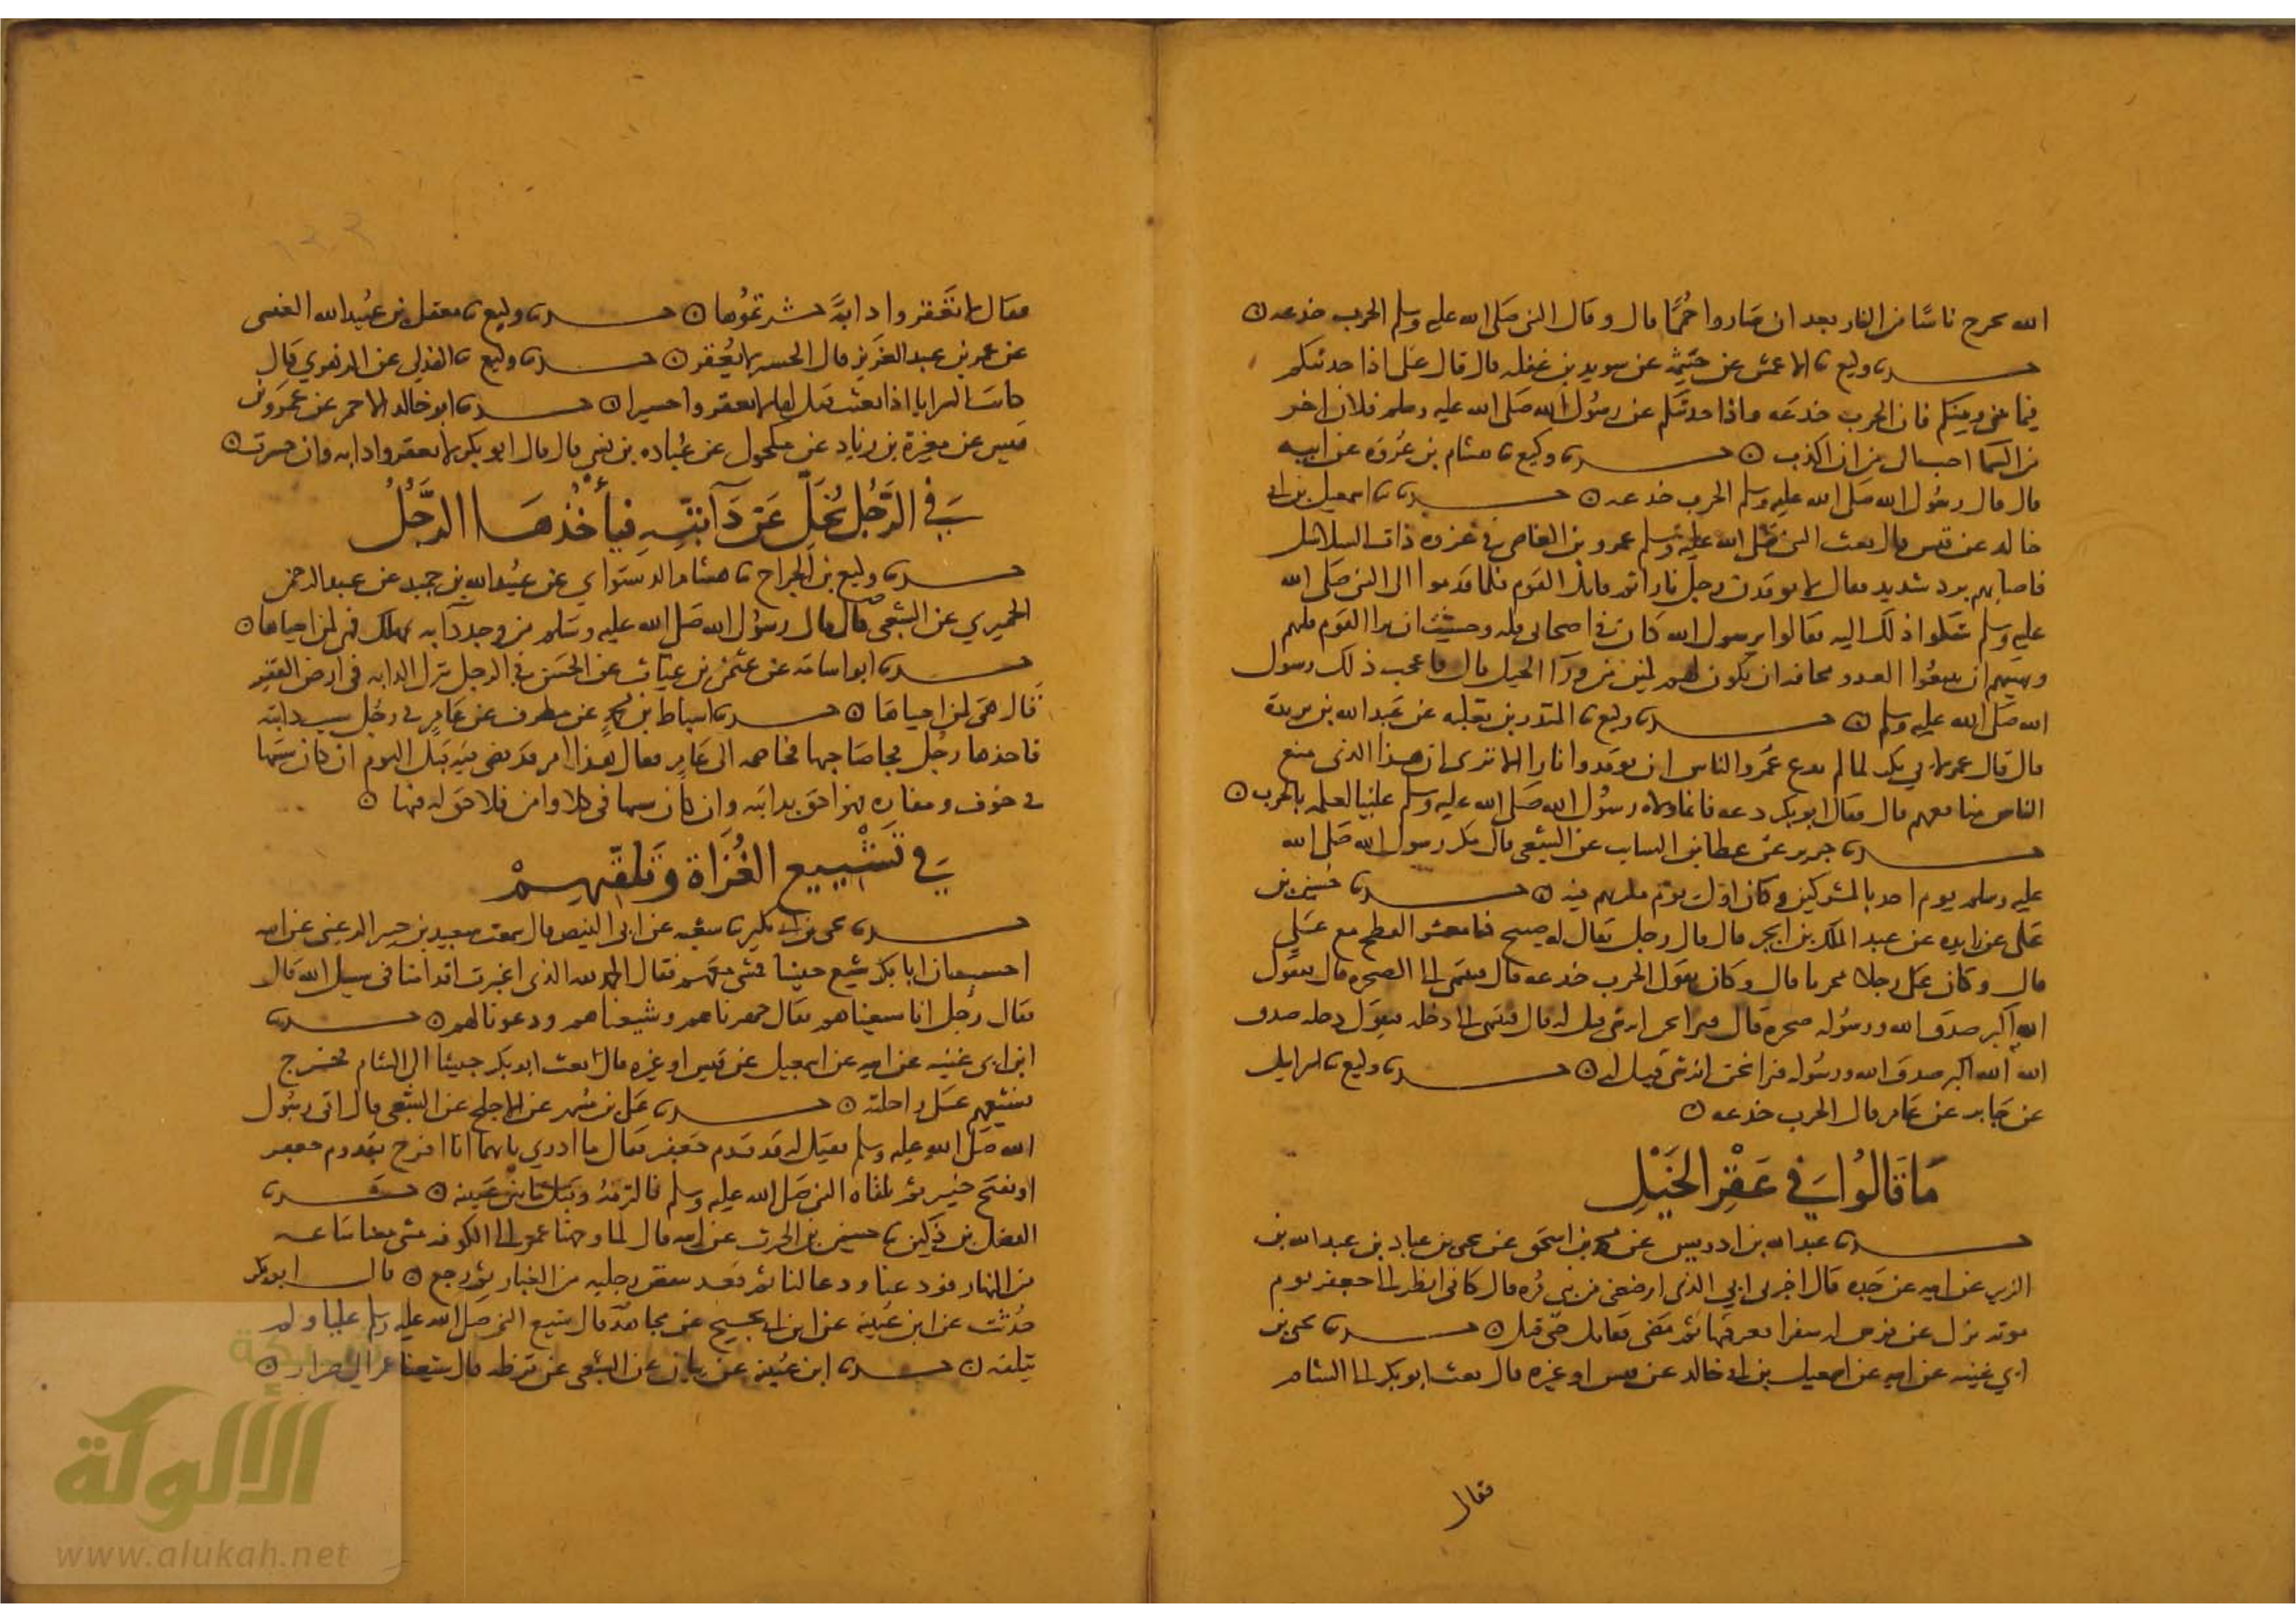 الله يخرج ناسا من النار بعد ان صاروا حُمَمًا قال وقال النبي صَلى الله عليه وسلم الحرب خدعه ○
حدثنا وكيع نا الاعمش عن خيثمة عن سويد بن غفله قال قال علي اذا حدثتكم
فيما بيني وبينكم فان الحرب خدعه واذا حدثتكم عن رسُول الله صَلى الله عليه وسلم فلان اخر
من السما احب الي من ان اكذب ○ حدثنا وكيع نا هشام بن عُروة عن ابيه
قال قال رسُول الله صَلى الله عليه وسلم الحرب خدعه ○ حدثنا اسمعيل بن ابي
خالد عن قيس قال بعث النبي صَلى الله عليه وسلم عمرو بن العاص في غزوه ذات السلاسل
فاصابهم برد شديد فقال لا يوقدن رجل نارا ثم قاتل القوم فلما قدموا الى النبي صَلى الله
عليه وسلم شكوا ذلك اليه فقالوا يرسول الله كان في اصحابي قله وخشيت ان يرا القوم قلهم
ونهيتهم ان يتبعُوا العدو مخافه ان يكون لهم كمين من ورآ الخيل قال فاعجب ذلك رسول
الله صَلى الله عليه وسلم ○ حدثنا وكيع نا المنذر بن ثعلبه عن عَبد الله بن بريدة
قال قال عمر لابي بكر لما لم يدع عَمرو الناس ان يوقدوا نارا الا ترى ان هذا الذي منع
الناس منافعهم قال فقال ابو بكر دعه فانما ولاه رسُول الله صَلى الله عليه وسلم علينا لعلمه بالحرب ○
حدثنا جرير عن عطا بن السايب عن الشعبي قال مكر رسول الله صَلى الله
عليه وسلم يوم احد بالمشركين وكان اول يوم مكر بهم فيه ○ حدثنا حُسين بن
عَلي عن زايده عن عبد الملك بن ابجر قال قال رجل
قال وكان علي رجلا محربا قال وكان يقول الحرب خدعه قال فينتهي الى الصخره قال فيقول
الله اكبر صدق الله ورسُوله صخرة قال
الله الله اكبر صدق الله ورسُوله حدثنا وكيع نا اسرايل
عن جَابر عن عَامر قال الحرب خدعه ○
مَا قَالُوا في عَقْرِ الخَيْلِ
حدثنا عبد الله بن ادريس عن محمد بن اسحق عن يحيى بن عباد بن عبد الله بن
الزبير عن ابيه عن جَده قال اخبرني ابي الذي ارضعني من بني مُره قال كاني انظر الى جعفر يوم
موته نزل عن فرس له شقرا فعرقبها ثم مَضى فقاتل حَتى قتل ○ حدثنا يحيى بن
ابي غنيه عن ابيه عن اسمعيل بن ابي خالد عن قيس او غيره قال بعث ابو بكر الى الشام
فقال
فقال لا تَعقروا دابةً حسرتمُوها ○ حدثنا وكيع نا معقل بن عُبيد الله العبسي
عن عمر بن عبد العَزيز قال الحسير لا يُعْقر ○ حدثنا وكيع نا الهذلي عن الزهري قَال
كانت السرايا اذا بعثت قيل لها لا تعقروا حسيرا ○ حدثنا ابو خالد الاحمر عن عَمرو بن
قيس عن مغيرة بن زياد عن مكحول عن عُباده بن نسي قال قال ابو بكر لا تعقروا دابه وان حسرت ○
في الرَّجُل يُخَلّي عَن دَآبّتِهِ فيأخُذُهَا الرَّجُلُ
حدثنا وكيع بن الجراح نا هشام الدستواي عن عبيد الله بن حميد عن عبد الرحمن
الحميري عن الشعبي قال قال رسُول الله صَلى الله عليه وسَلم من وجد دآبه بمهلك فهي لمن احياها ○
حدثنا ابو اسامه عن عثمن بن غياث عن الحَسَن في الرجل ترك الدابه في ارض القفر
قَال هي لمن احياهَا ○ حدثنا اسباط بن محمد عن مطرف عن عَامر في رجُل سيب دابته
فاخذها رجُل فجا صَاحبها فخاصمه الى عَامر فقال هذا امر قد قضي فيه قبل اليوم ان كان سيّبها
في خوف ومفازه فهو احق بدابته وان كان سيبها في كلا وامن فلا حق له فيها ○
في تَشْييع الغُزَاة وَتَلَقّيهِمْ
حدثنا يحيى بن ابي بكير نا شعبه عن ابي الفيض قال سمعت سعيد بن جبير الرعيني عن ابيه
ان ابا بكر شيع جيشا فمشى معهم فقال الحمد لله الذي اغبرت اقدامنا في سبيل الله قال
فقال رجُل انا شيعناهم فقال جهزناهم وشيعناهم ودعونا لهم ○ حدثنا
ابن ابي غنيه عن ابيه عن اسمعيل عن قيس او غيره قال بعث ابو بكر جيشا الى الشام فخرج
يشيعهم على راحلته ○ حدثنا عَلي بن مُسهر عن الاجلح عن الشعبي قال اتى رسُول
الله صَلى الله عليه وسلم فقيل له قد قدم جَعفر فقال ما ادري بايهما انا افرح بقدوم جعفر
او بفتح خيبر ثم تلقاه النبي صَلى الله عليه وسلم فالتزمهُ وقبل ما بين عينيه ○ حدثنا
الفضل بن دُكين نا حسين بن الحرث عن ابيه قال لما وجهنا عمر الى الكوفه مشى معنا سَاعه
من النهار فودعنا ودعا لنا ثم قعد ينفض رجليه من الغبار ثم رجع ○ قال ابو بكر
حُدثت عن ابن عُيينه عن ابن ابي نجيح عن مجاهد قال شيع النبي صَلى الله عليه وسلم عليا ولم
يتلقه ○ حدثنا ابن عُيينه عن بيان عن الشعبي عن قرظه قال شيعنا عمر الى صرار ○
شبكة
الألوكة
www.alukah.net